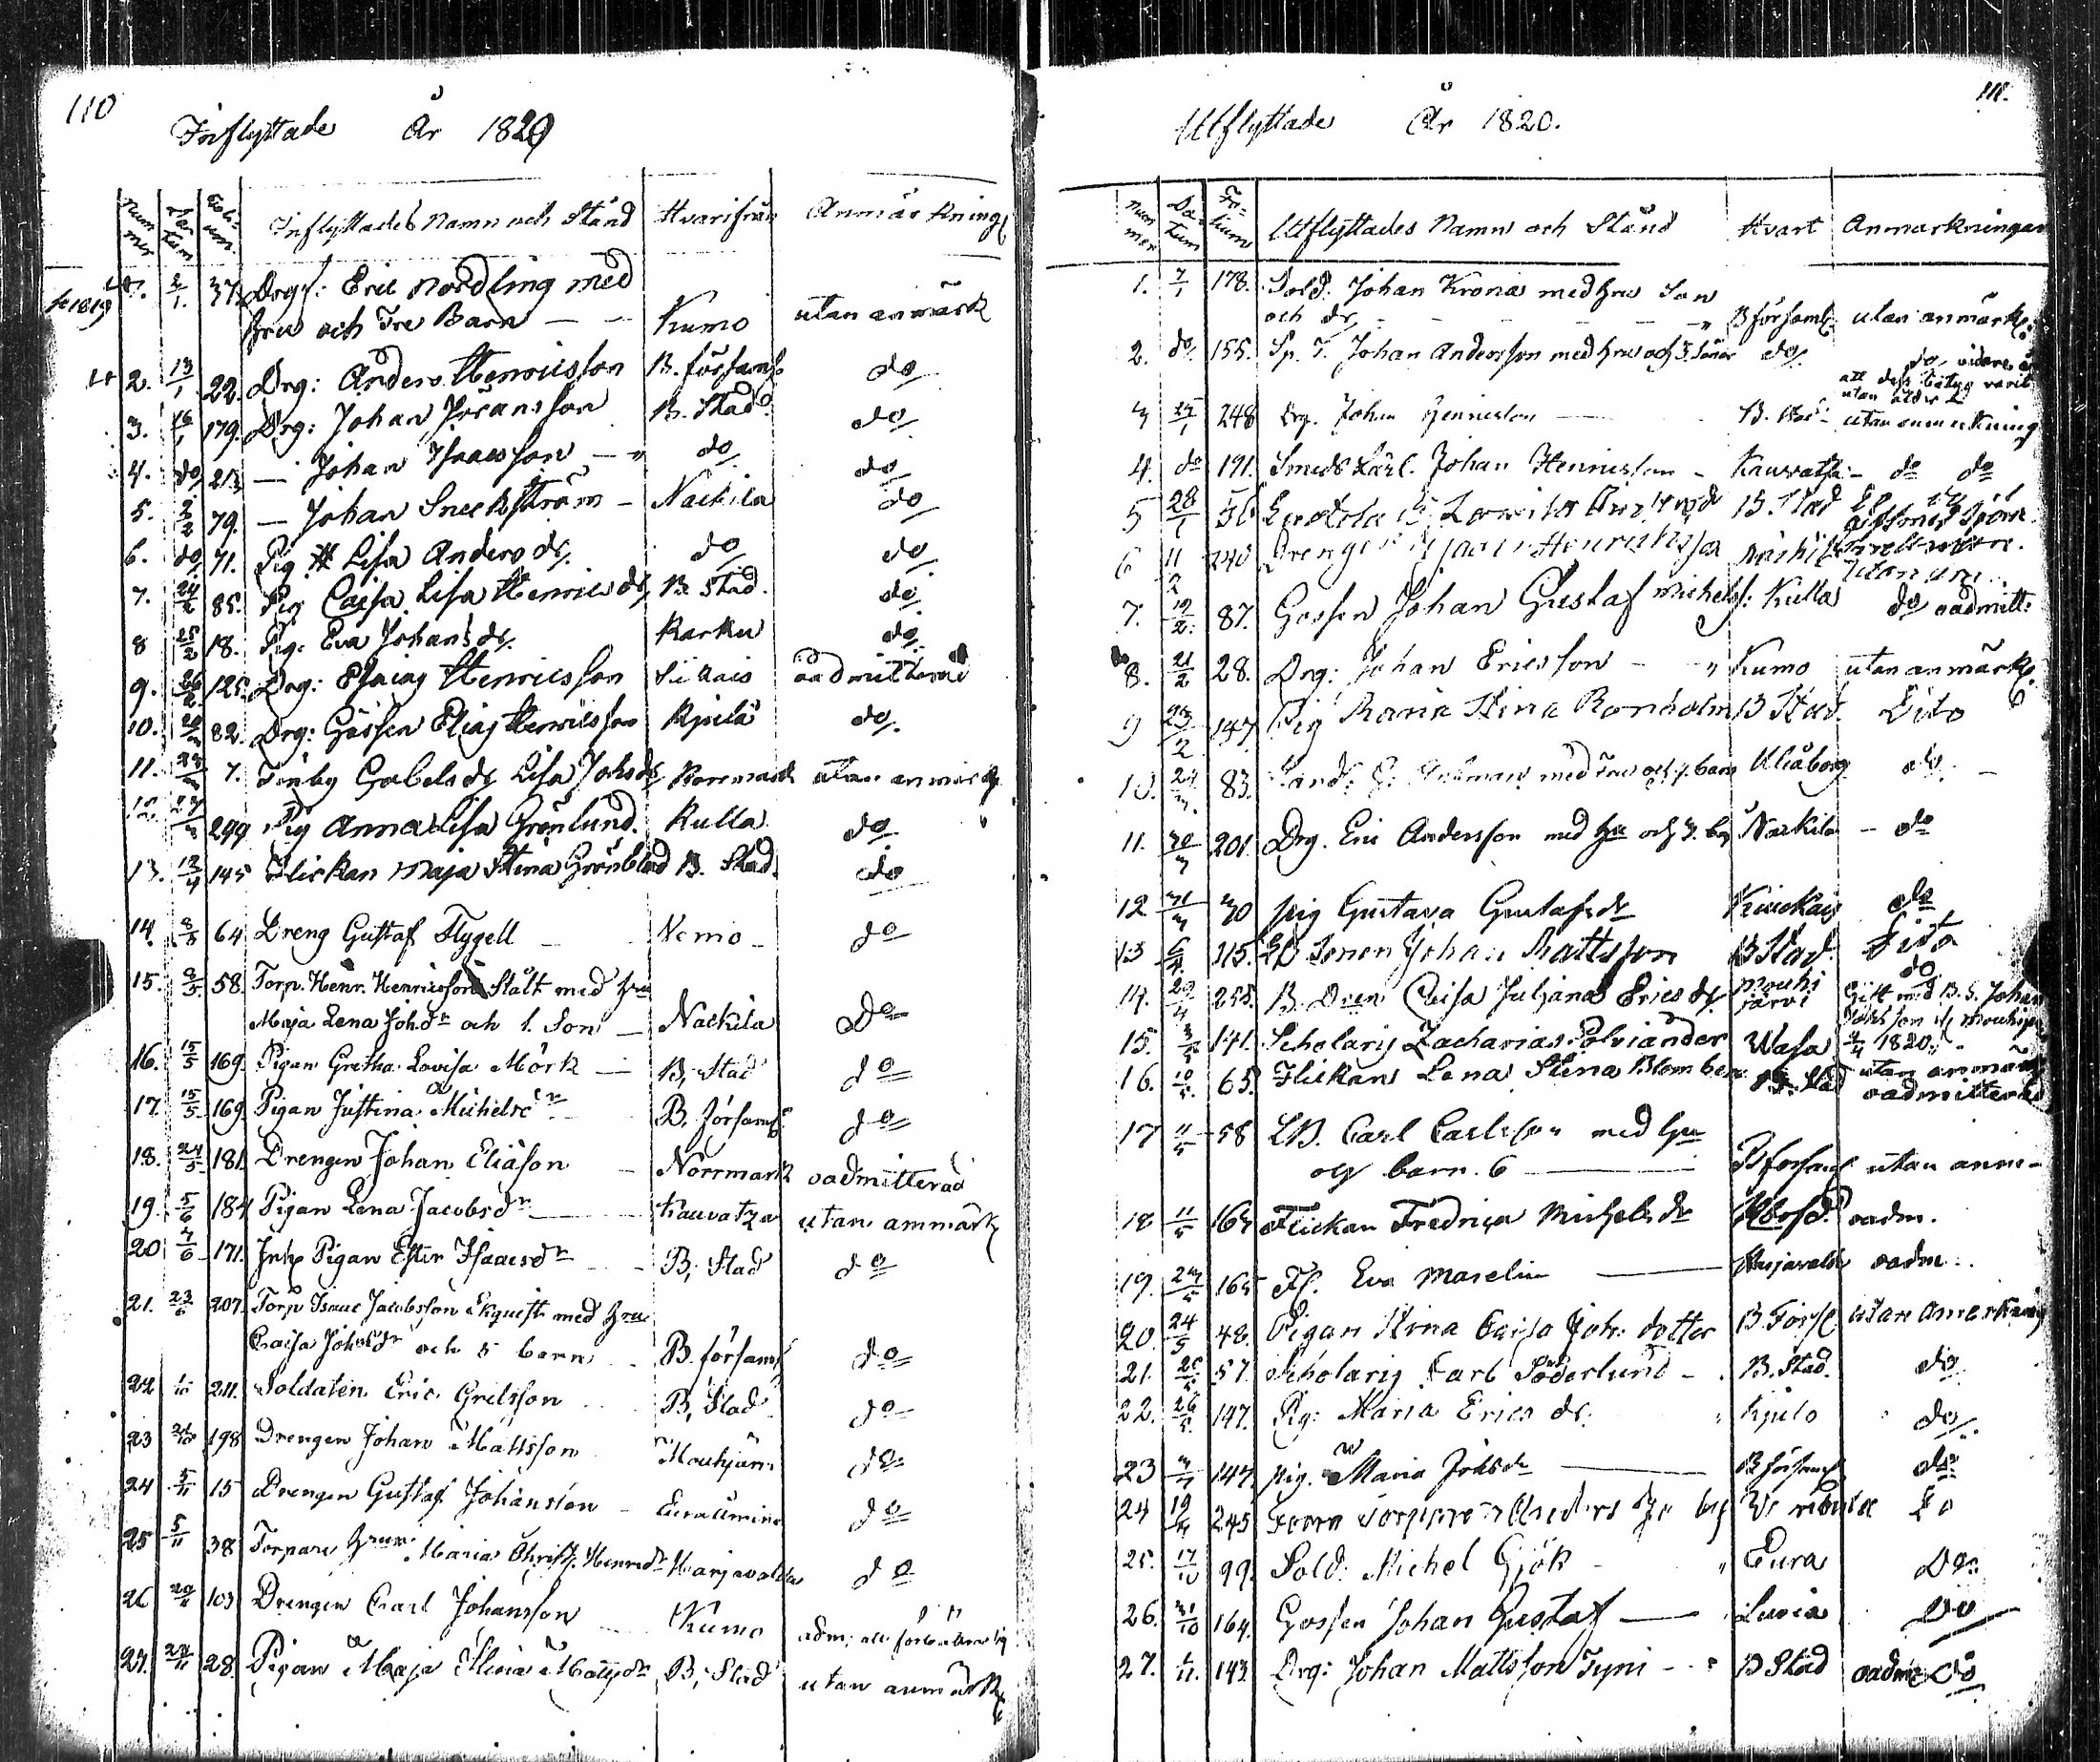 110
Inflyttade År 1820
Num mer Da tum Foli um. Inflyttades Namn och Stånd Hvarifrån Anmärkning
1. 2/1 37. Drg: Eric Nordling med
hru och Tre Barn — — Kumo utan anmärk
2. 13/1 22. Drg: Anders Henricsson B. församl do
3. 16/1 179. Drg: Johan Göransson B. Stad do
4. do 213 — Johan Isaacsson — do do
5. 2/2 79. — Johan Sneckström — Nackila do
6. do 71. Pig Lisa Anders dr. do do
7. 24/2 85. Pig Caisa Lisa Henrics dr B. Stad. do
8 25/2 18. Pig: Eva Johans dr. Karku do
9. 26/2 125. Drg: Esaias Henricsson Siikais oadmitterad
10. 82. Drg: Gossen Elias Henricsson Kjulå do.
11. 7. Gabels dr Lisa Johs dr Norrmark utan anmärk
12. 27/3 299 Pig Anna Lisa Grönlund. Kulla do
13. 12/4 145 Flickan Maja Stina Grönblad B. Stad. do
14. 8/5 64 Dreng Gustaf Flygell — Nemo — do
15. 8/5 58. Torp. Henr. Henricsson Stålt med hru
Maja Lena Joh.dr och 1. Son — Nackila Do
16. 15/5 169. Pigan Gretha Lovisa Mörk — B, Stad do
17. 15/5 169. Pigan Justina Michelsdr B. församl do
18. 24/5 181. Drengen Johan Eliäson — Norrmark oadmitterad
19. 5/6 184 Pigan Lena Jacobsdr — Kauvatza utan anmärk
20 7/6 171. Inh Pigan Ester Isaacsdr B, Stad do
21. 23/6 207. Torp Isaac Jacobsson Ekquist med hru
Caisa Johsdr och 5 barn B. församl do
22 1/10 211. Soldaten Eric Grelsson B, Stad do
23 198 Drengen Johan Mattsson Mouhijärvi do
24 5/11 15 Drengen Gustaf Johansson — Euraåminne do
25 5/11 38 Torpare hrun Maria Christ. Henrdr Harjavalda do
26 103 Drengen Carl Johansson Kumo adm;
27. 28. Pigan Maja Matsdr B, Stad utan anmärk
111.
Utflyttade År 1820.
Num mer Da tum Fo- lium Utflyttades Namn och Stånd Hvart Anmärkningar
1. 7/1 178. Sold. Johan Krona med hru Son
och dr, — — — B församl. utan anmärk.
2. do 155. Sp. T. Johan Andersson med hru och 3. Söner do. do
att dess betyg varit
utan
3 25/1 248 Drg. Johan Henricsson — B. Stad utan anmerkning
4. do 191. Smeds Lärl. Johan Henricsson — Kauvatza — do do
5 28/1 56 B. Stad
6 11/2 240 Drengen Isaac Henriksson
7. 19/2 87. Gossen Johan Gustaf Michels: Kulla do oadmitt:
8. 21/2 28. Drg: Johan Ericsson — Kumo utan anmärk.
9 147 Pig Maria Stina Ronholm B Stad. Dito
10. 83. med hru och 7. barn Uleåborg do —
11. 30/3 201. Drg. Eric Andersson med hru och 3. barn Nackila — do
12 31/3 30 pig Gustava Gustafsdr Kiuckais do
13 115. Sonen Johan Mattsson B Stad Dito
14. 255. B. Caisa Juliana Erics dr. Mouhi järvi do
Gift med B. S. Johan
1820.
15. 141. Scholaris Zacharias Polviander Wasa utan anmärk
16. 10/5 65. Flickan Lena Stina Blomberg B. Stad oadmitterad
17 11/5 58 LB. Carl Carlsson med hru
och barn. 6 — B församl utan anm—
18 11/5 165 Flickan Fredrica Michelsdr oadm.
19. 165 Fl. Eva Maselin — Harjavalda oadm..
20. 24/5 48. Pigan Stina Caisa Joh: dotter B Försl utan anmerkning
21. 57. Scholaris Carl Söderlund — B. Stad. do
22. 26/5 147. Pig: Maria Erics dr. Kjulo do
23 147. pig. Maria Johsdr — B församl do
24 19/ 245 Anders do
25. 17/10 99. Sold: Michel Gjök Eura Do
26. 31/10 164. Gossen Johan Gustaf — Luvia Do
27. 1/11. 143. Drg: Johan Mattsson Tyni — B Stad oadm Do